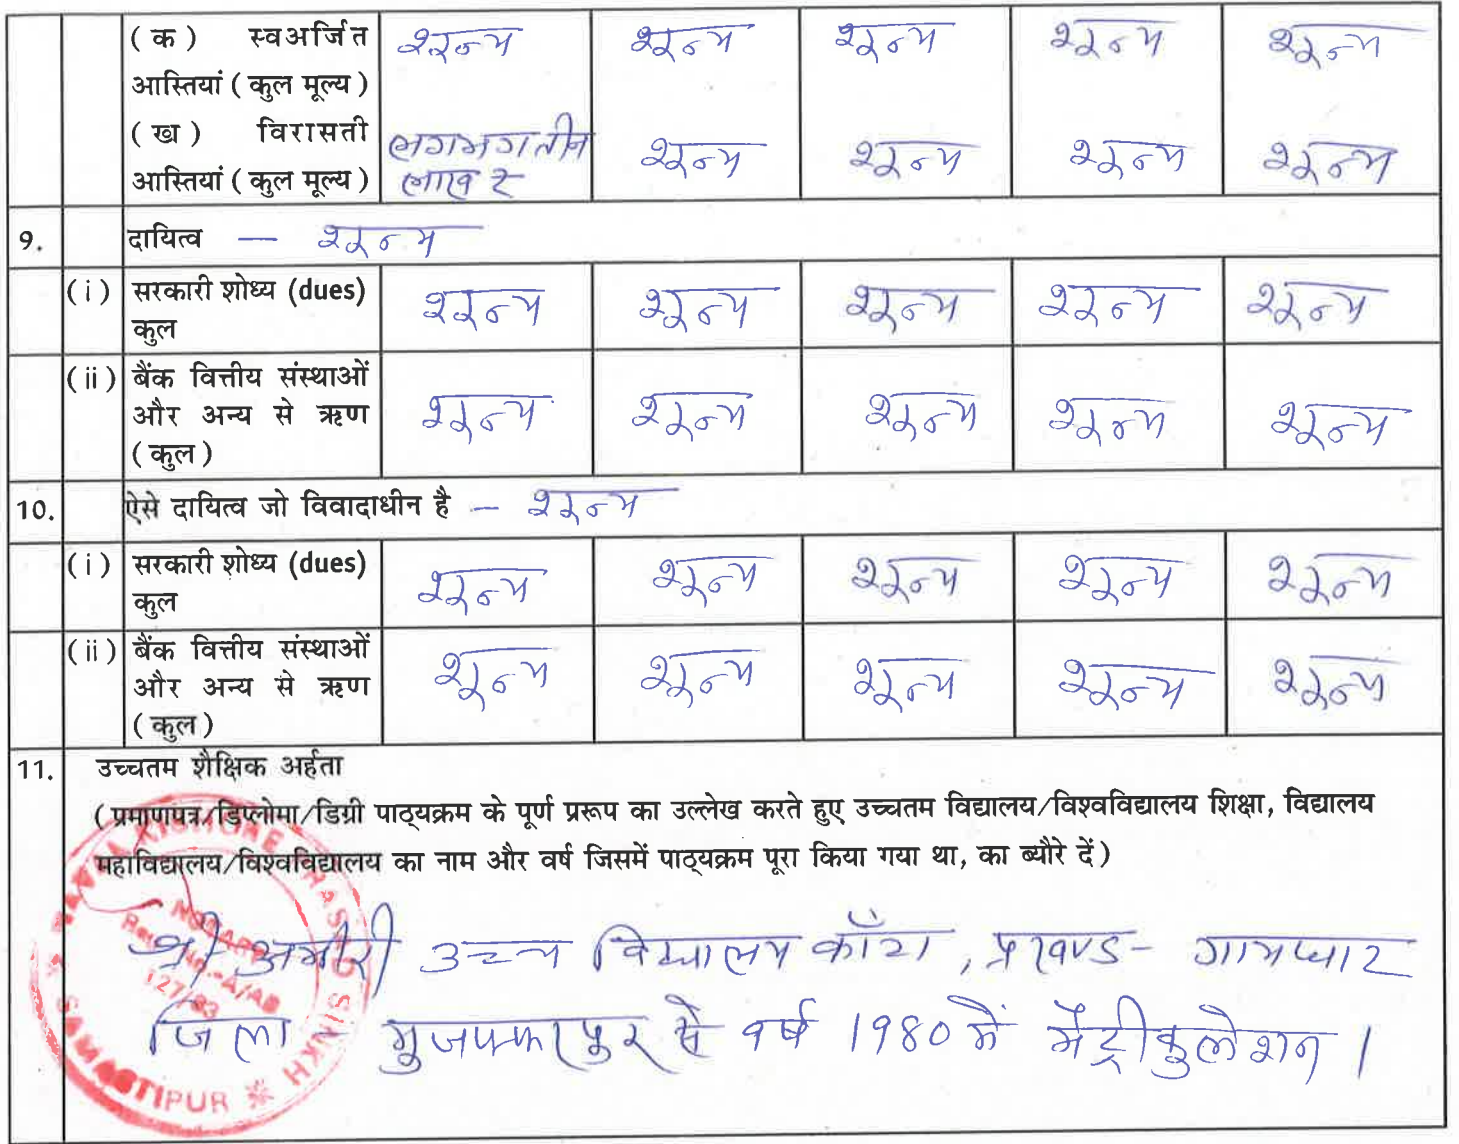 (क) स्वअर्जित आस्तियां (कुल मूल्य) शून्य शून्य शून्य शून्य शून्य
(ख) विरासती आस्तियां (कुल मूल्य) लगभग तीन लाख रु शून्य शून्य शून्य शून्य
9. दायित्व — शून्य
(i) सरकारी शोध्य (dues) कुल शून्य शून्य शून्य शून्य शून्य
(ii) बैंक वित्तीय संस्थाओं और अन्य से ऋण (कुल) शून्य शून्य शून्य शून्य शून्य
10. ऐसे दायित्व जो विवादाधीन है — शून्य
(i) सरकारी शोध्य (dues) कुल शून्य शून्य शून्य शून्य शून्य
(ii) बैंक वित्तीय संस्थाओं और अन्य से ऋण (कुल) शून्य शून्य शून्य शून्य शून्य
11. उच्चतम शैक्षिक अर्हता
(प्रमाणपत्र/डिप्लोमा/डिग्री पाठ्यक्रम के पूर्ण प्ररूप का उल्लेख करते हुए उच्चतम विद्यालय/विश्वविद्यालय शिक्षा, विद्यालय
महाविद्यालय/विश्वविद्यालय का नाम और वर्ष जिसमें पाठ्यक्रम पूरा किया गया था, का ब्यौरे दें)
श्री उच्च विद्यालय काँटा, प्रखण्ड - गायघाट
जिला - मुजफ्फरपुर से वर्ष 1980 में मैट्रीकुलेशन ।
KISHORE PRASAD SINKH
NOTARY
127/83
SAMASTIPUR